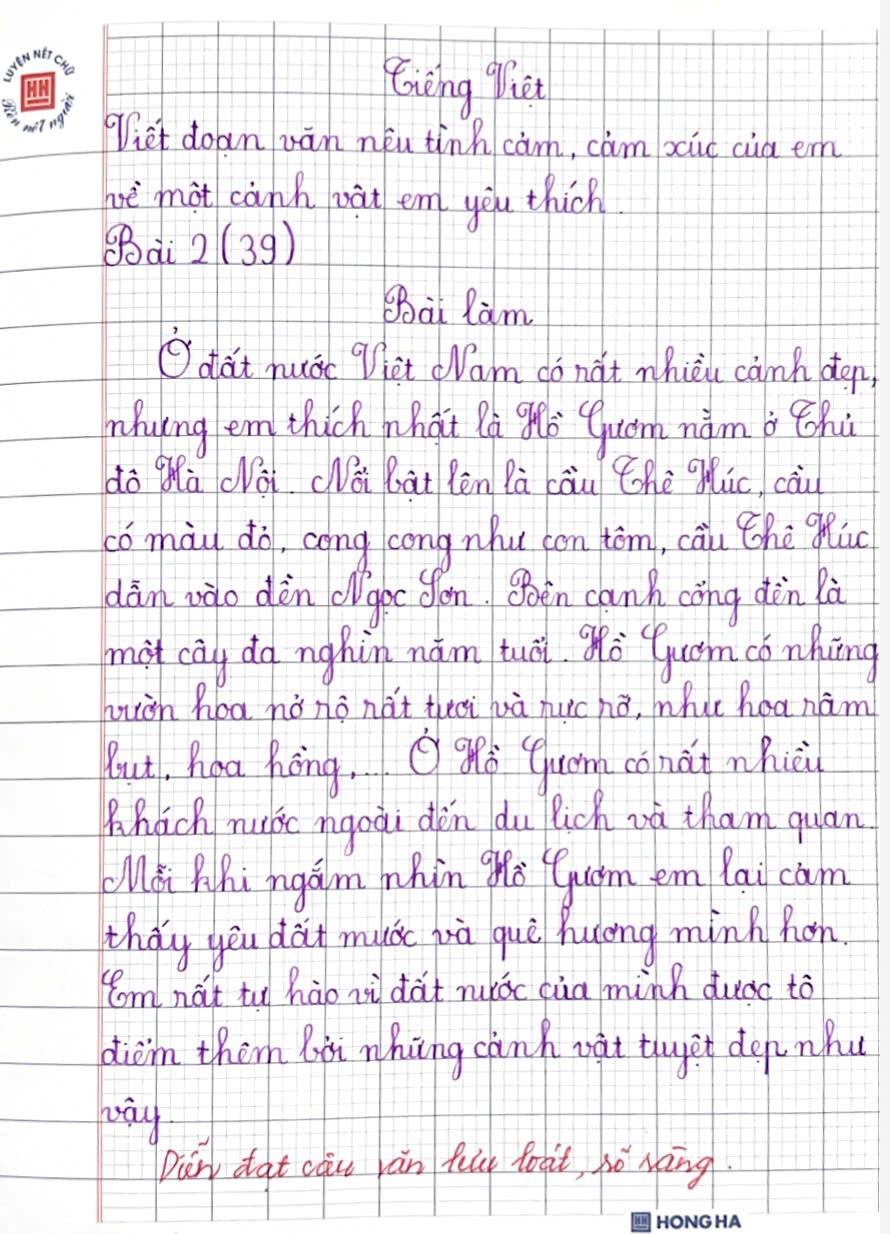 LUYỆN NÉT CHỮ
HH
Rèn nết người
Tiếng Việt
Viết đoạn văn nêu tình cảm, cảm xúc của em
về một cảnh vật em yêu thích.
Bài 2 (39)
Bài làm
Ở đất nước Việt Nam có rất nhiều cảnh đẹp,
nhưng em thích nhất là Hồ Gươm nằm ở Thủ
đô Hà Nội. Nổi bật lên là cầu Thê Húc, cầu
có màu đỏ, cong cong như con tôm, cầu Thê Húc
dẫn vào đền Ngọc Sơn. Bên cạnh cổng đền là
một cây đa nghìn năm tuổi. Hồ Gươm có những
vườn hoa nở rộ rất tươi và rực rỡ, như hoa râm
bụt, hoa hồng,... Ở Hồ Gươm có rất nhiều
khách nước ngoài đến du lịch và tham quan.
Mỗi khi ngắm nhìn Hồ Gươm em lại cảm
thấy yêu đất nước và quê hương mình hơn.
Em rất tự hào vì đất nước của mình được tô
điểm thêm bởi những cảnh vật tuyệt đẹp như
vậy.
Diễn đạt câu văn lưu loát, rõ ràng.
HH HONG HA